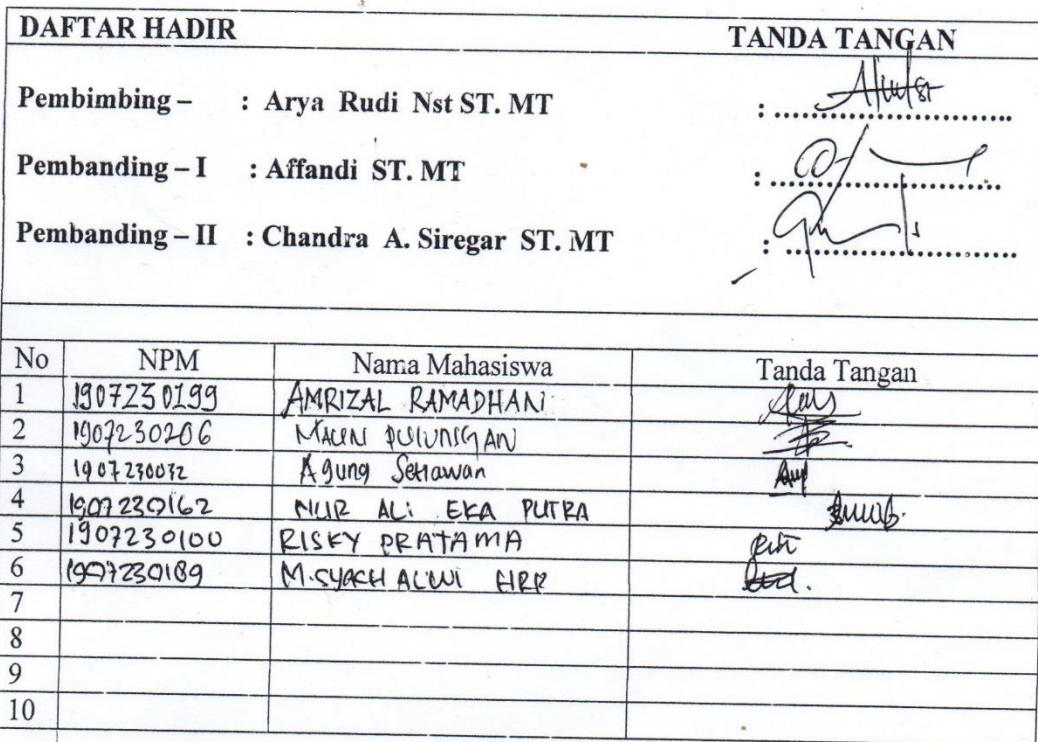 DAFTAR HADIR TANDA TANGAN
Pembimbing – : Arya Rudi Nst ST. MT : ..............................
Pembanding – I : Affandi ST. MT : ..............................
Pembanding – II : Chandra A. Siregar ST. MT : ..............................
No NPM Nama Mahasiswa Tanda Tangan
1 1907230199 AMRIZAL RAMADHANI
2 1907230206 PULUNGAN
3 1907230032 Agung Setiawan
4 1907230162 NUR ALI EKA PUTRA
5 1907230100 RISKY PRATAMA
6 1907230189 M. SYACH ALWI HRP
7
8
9
10